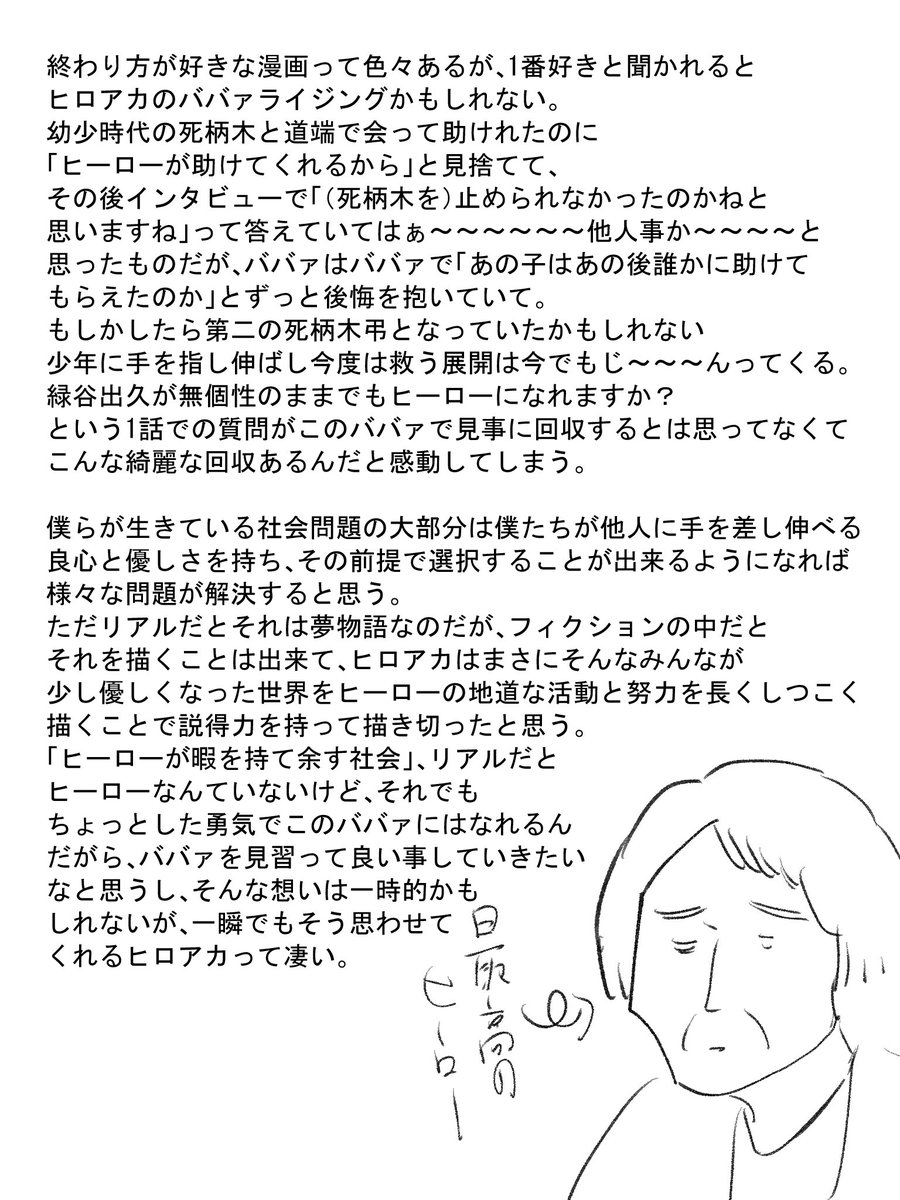 終わり方が好きな漫画って色々あるが、1番好きと聞かれると
ヒロアカのババァライジングかもしれない。
幼少時代の死柄木と道端で会って助けれたのに
「ヒーローが助けてくれるから」と見捨てて、
その後インタビューで「(死柄木を)止められなかったのかねと
思いますね」って答えていてはぁ～～～～～～他人事か～～～～と
思ったものだが、ババァはババァで「あの子はあの後誰かに助けて
もらえたのか」とずっと後悔を抱いていて。
もしかしたら第二の死柄木弔となっていたかもしれない
少年に手を指し伸ばし今度は救う展開は今でもじ～～～んってくる。
緑谷出久が無個性のままでもヒーローになれますか？
という1話での質問がこのババァで見事に回収するとは思ってなくて
こんな綺麗な回収あるんだと感動してしまう。
僕らが生きている社会問題の大部分は僕たちが他人に手を差し伸べる
良心と優しさを持ち、その前提で選択することが出来るようになれば
様々な問題が解決すると思う。
ただリアルだとそれは夢物語なのだが、フィクションの中だと
それを描くことは出来て、ヒロアカはまさにそんなみんなが
少し優しくなった世界をヒーローの地道な活動と努力を長くしつこく
描くことで説得力を持って描き切ったと思う。
「ヒーローが暇を持て余す社会」、リアルだと
ヒーローなんていないけど、それでも
ちょっとした勇気でこのババァにはなれるん
だがら、ババァを見習って良い事していきたい
なと思うし、そんな想いは一時的かも
しれないが、一瞬でもそう思わせて
くれるヒロアカって凄い。
高の
ヒーロー